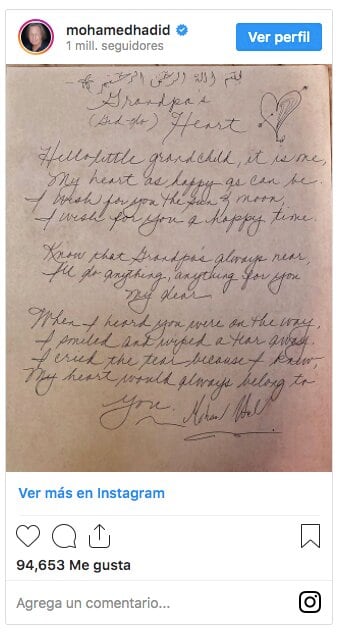 mohamedhadid
1 mill. seguidores
Ver perfil
بسم الله الرحمن الرحيم
Grandpa's
Heart
Hello little grandchild, it is me,
My heart as happy as can be.
I wish for you the sun & moon,
I wish for you a happy time.
Know that Grandpa's always near,
I'll do anything, anything for you
My dear
When I heard you were on the way,
I smiled and wiped a tear away.
I cried the tear because I knew,
My heart would always belong to
you.
Ver más en Instagram
94,653 Me gusta
Agrega un comentario...